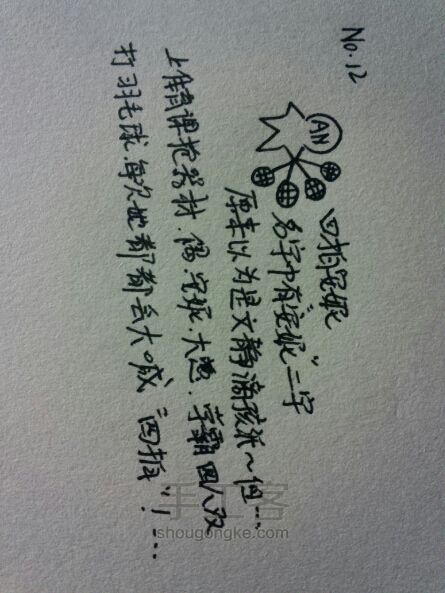 No.12
AN
四拍安妮
名字中有“安妮”二字
原来以为是文静滴孩纸~但...
上体育课抢器材.偶.安妮.大.学霸四人双
打羽毛球.每次她都都会大喊“四拍”!...
手工客
shougongke.com